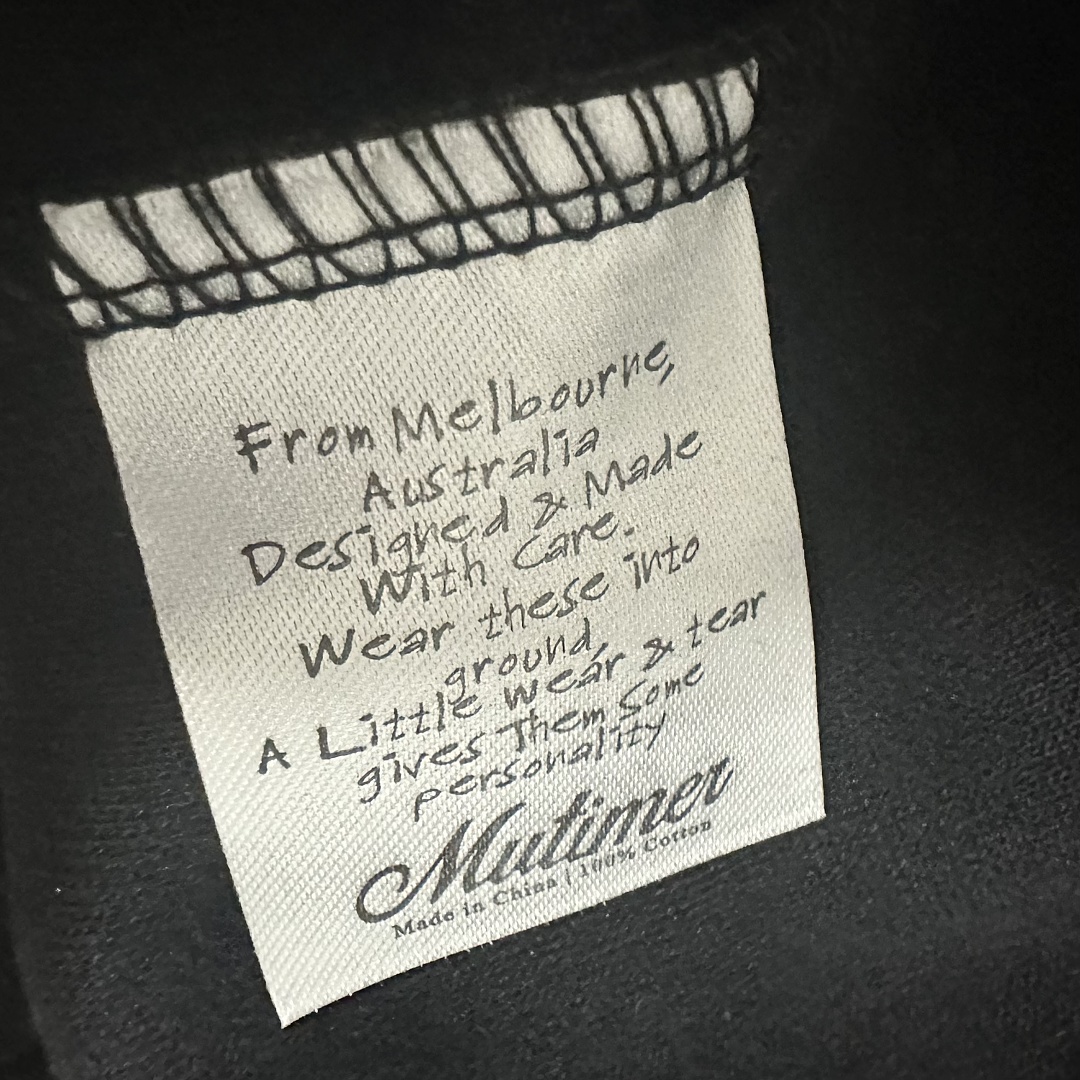 From Melbourne,
Australia
Designed & Made
With Care.
Wear these into
ground,
A Little wear & tear
gives Them Some
personality
Mutimer
Made in China | 100% Cotton